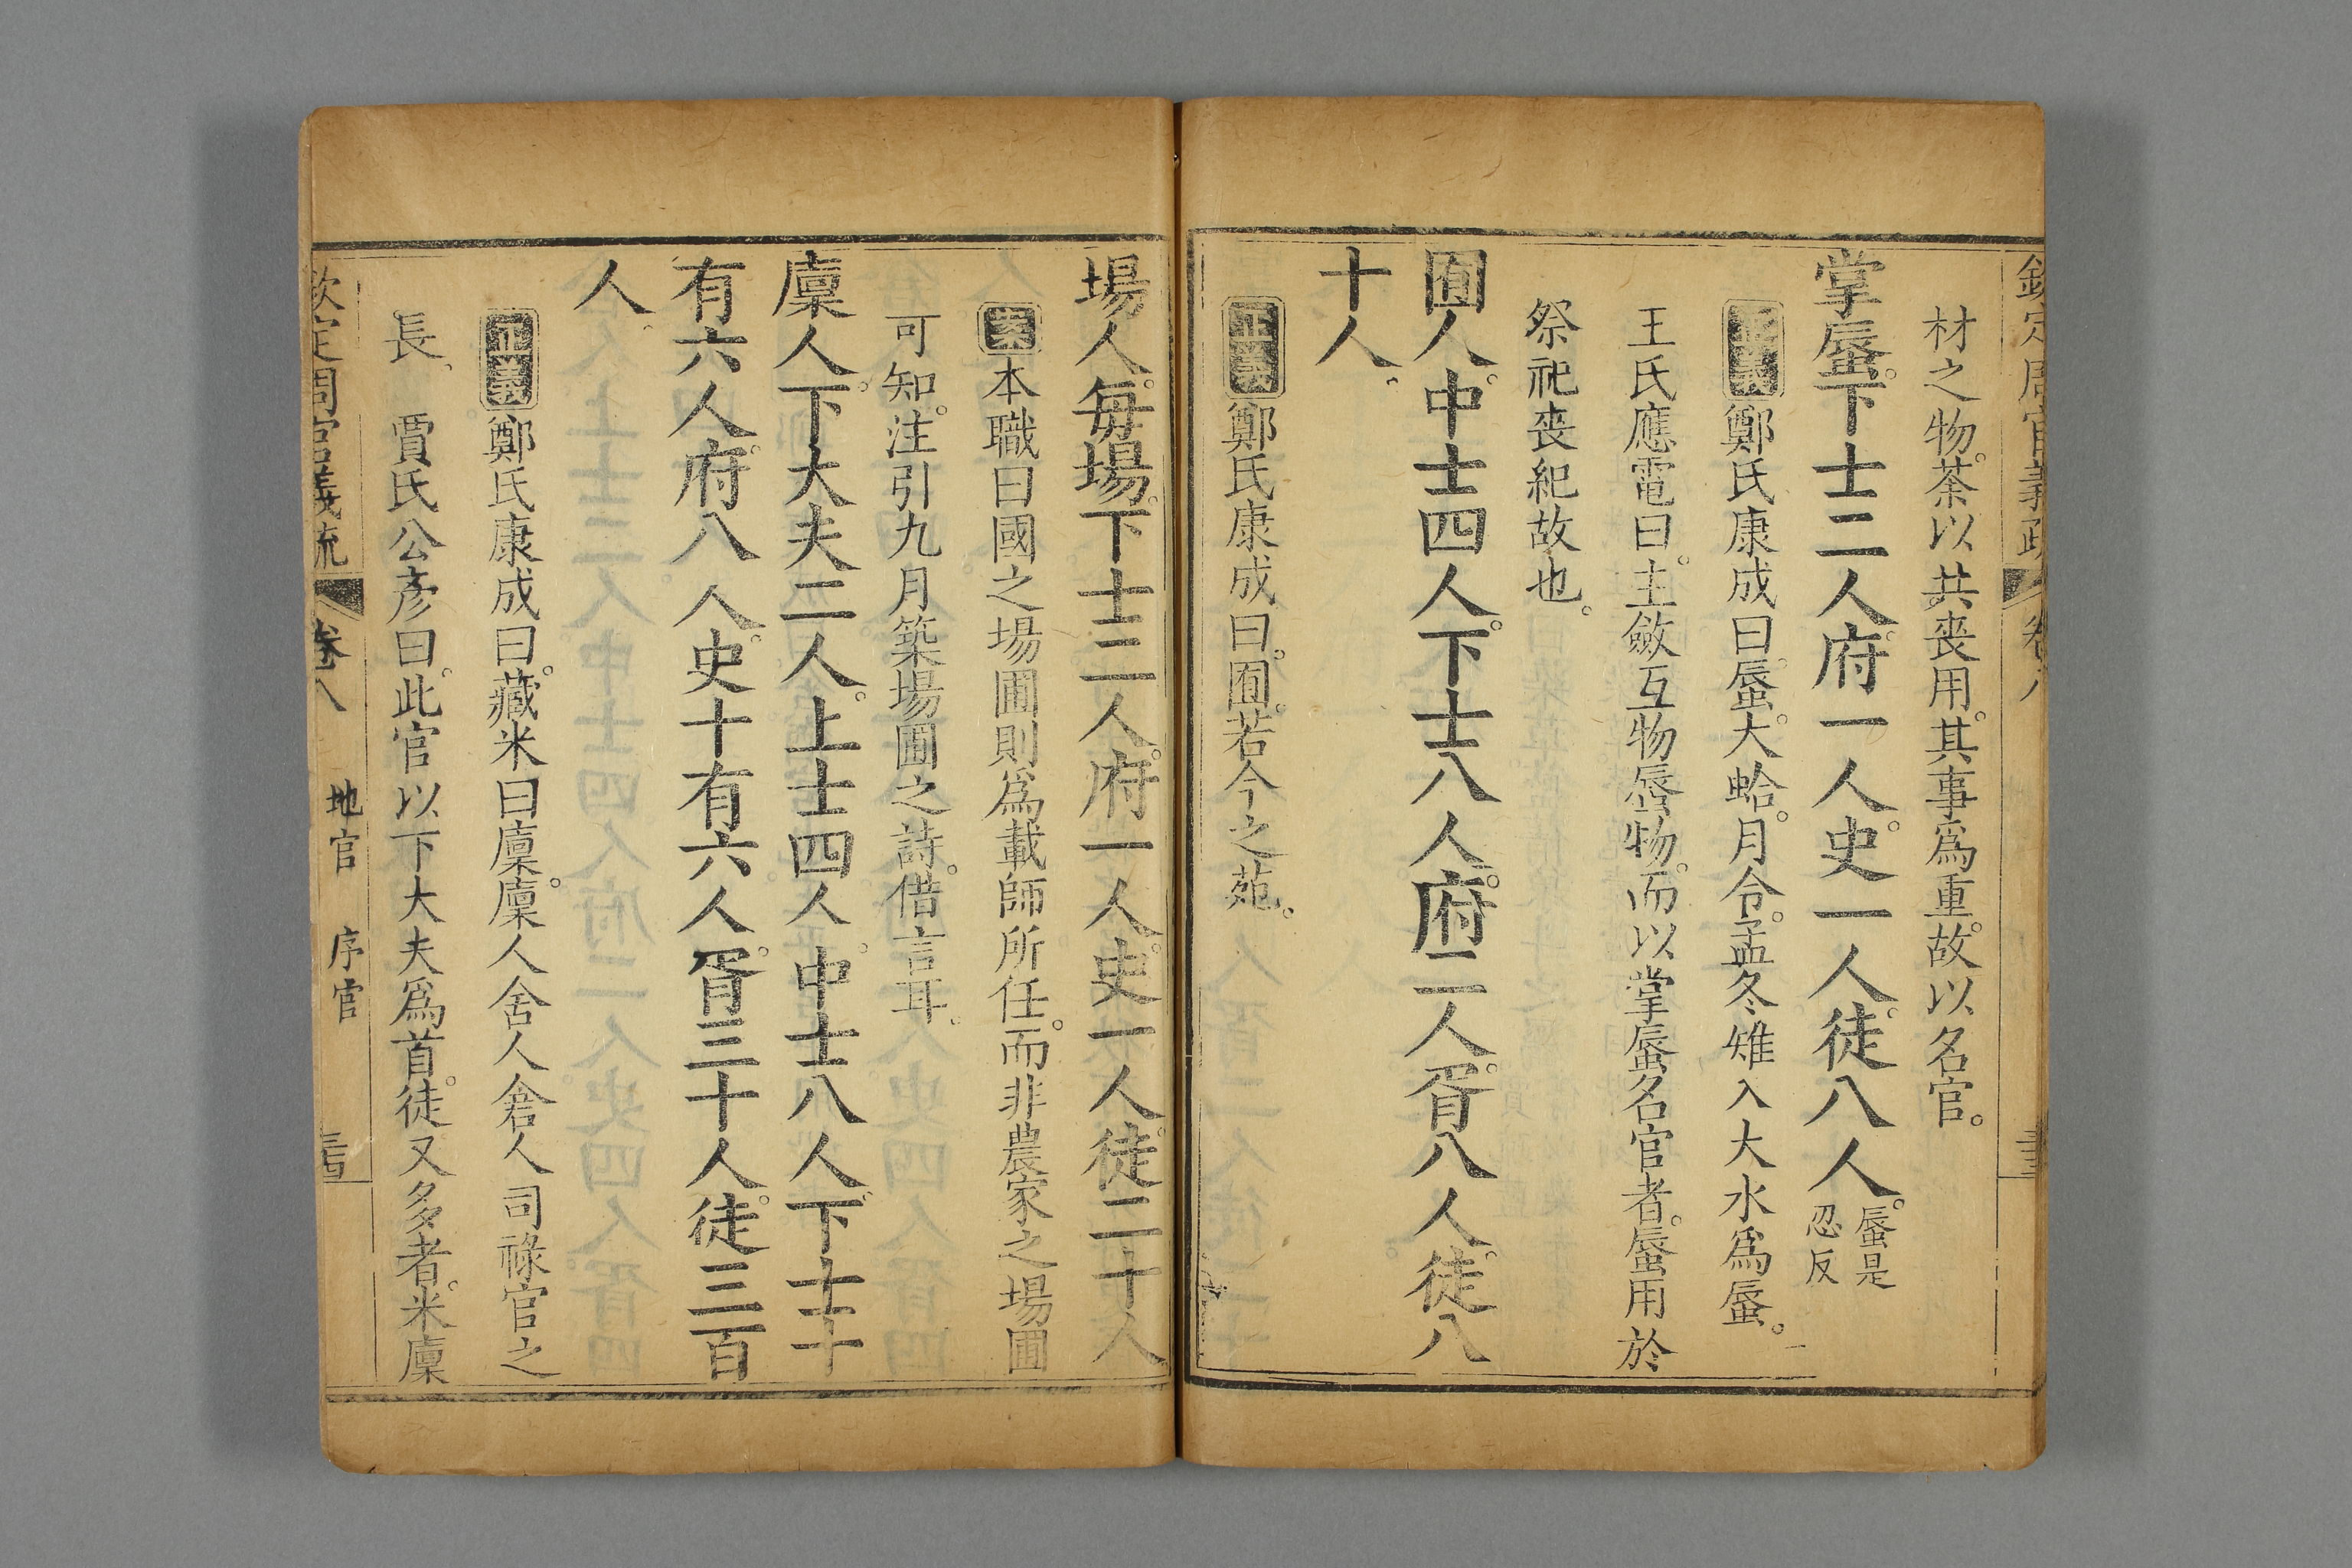 欽定周官義疏 卷八
材之物。荼以共喪用。其事為重。故以名官。
掌蜃。下士二人。府一人。史一人。徒八人。蜃是忍反
正義鄭氏康成曰。蜃。大蛤。月令。孟冬雉入大水為蜃。
王氏應電曰。主斂互物蜃物。而以掌蜃名官者。蜃用於
祭祀喪紀故也。
囿人。中士四人。下士八人。府二人。胥八人。徒八
十人。
正義鄭氏康成曰。囿。若今之苑。
場人。每場。下士二人。府一人。史一人。徒二十人
案本職曰國之場圃則為載師所任。而非農家之場圃
可知。注引九月築場圃之詩。借言耳。
廩人。下大夫二人。上士四人。中士八人。下士十
有六人。府八人。史十有六人。胥三十人。徒三百
人。
正義鄭氏康成曰。藏米曰廩。廩人舍人倉人司祿官之
長。 賈氏公彥曰。此官以下大夫為首。徒又多者。米廩
欽定周官義疏 卷八 地官 序官